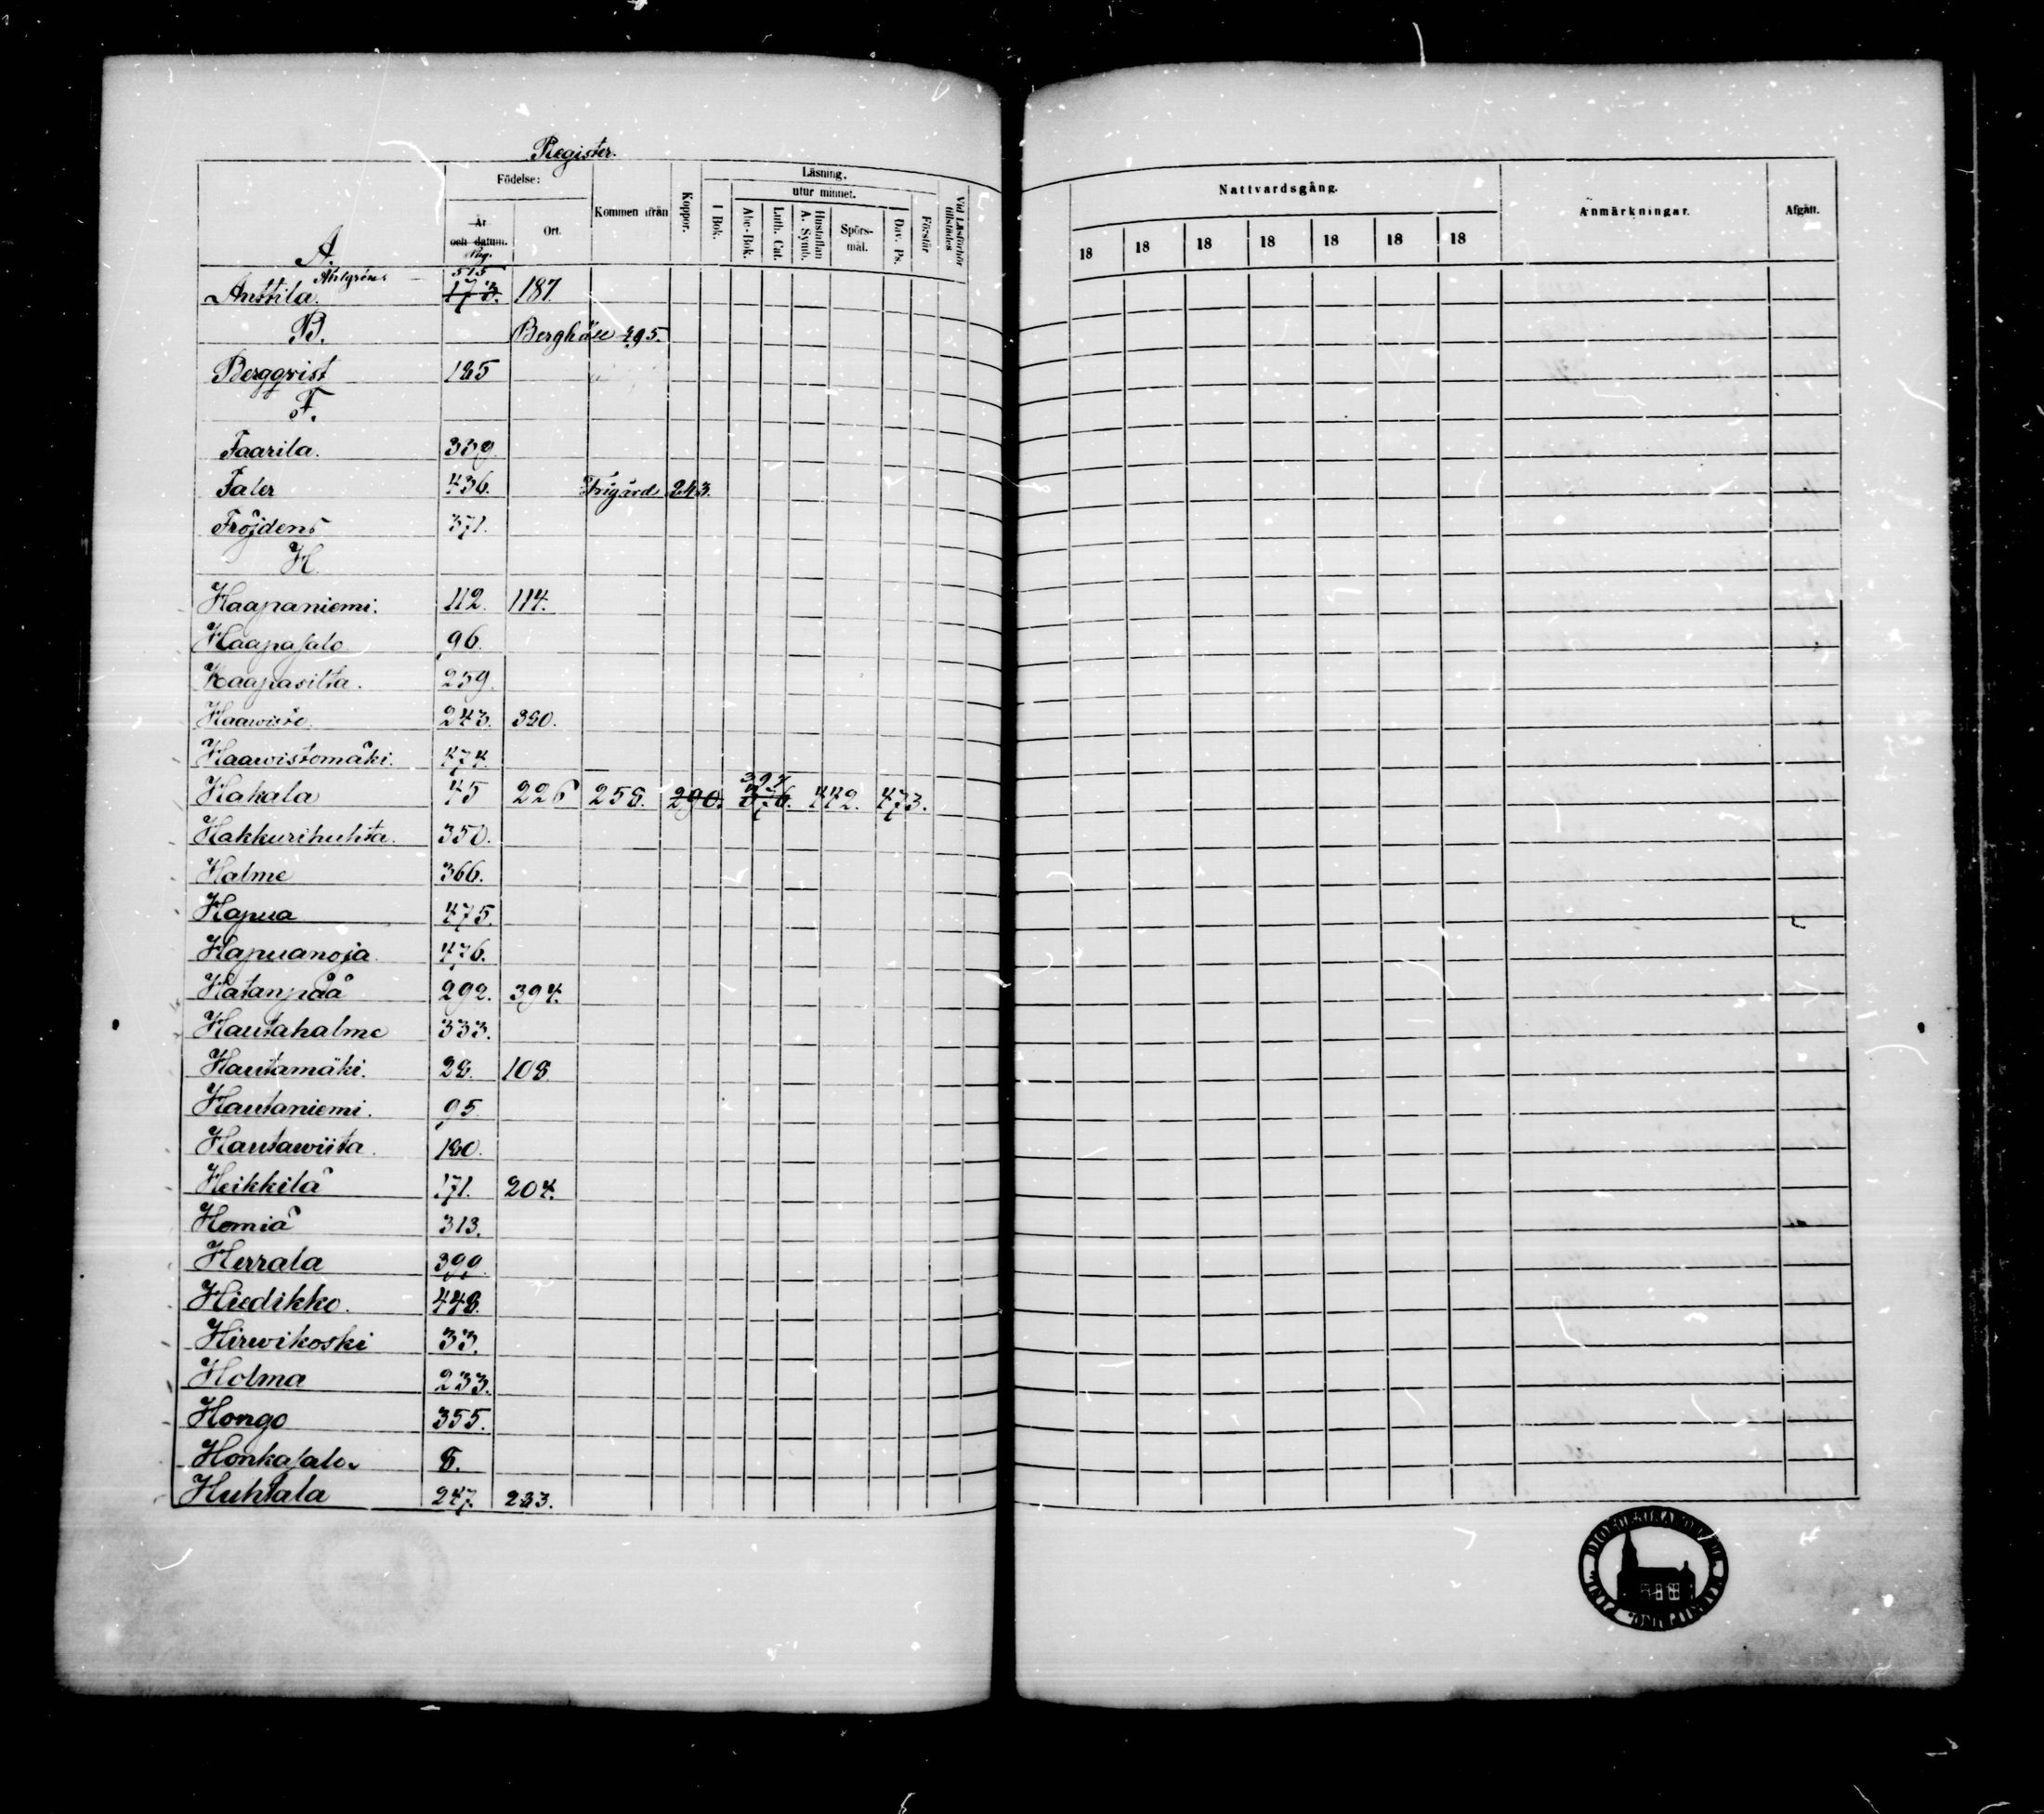 Register.
Födelse:
Kommen ifrån
Koppor.
Läsning.
Vid Läsförhör tillstädes
År och datum.
Ort.
I Bok.
utur minnet.
Abc-Bok.
Luth. Cat.
Hustaflan A. Symb.
Spörs-mål.
Dav. Ps.
Förstår
A. Pag.
Ahlgrens 515
Anttila. 173. 187
B. Berghäll 495.
Bergqvist 185
F.
Faarila. 339
Faler 436. Frigårds 243.
Fröjdens 371.
H.
Haapaniemi. 112. 114.
Haapasalo 96.
Haapasilta. 259.
Haawisto. 243. 380.
Haawistomäki. 474.
Hakala 45 226 258. 290. 376. 397 442. 473.
Hakkurihuhta. 350.
Halme 366.
Hapua 475.
Hapuanoja. 476.
Hatanpää 292. 394.
Hautahalme 333.
Hautamäki. 28. 108.
Hautaniemi. 95.
Hautawiita. 180.
Heikkilä 171. 204.
Hemiä 313.
Herrala 399
Hiedikko. 448.
Hirwikoski 33.
Holma 233.
Hongo 355.
Honkasalo. 8.
Huhtala 247. 283.
Nattvardsgång.
Anmärkningar.
Afgått.
18 18 18 18 18 18 18